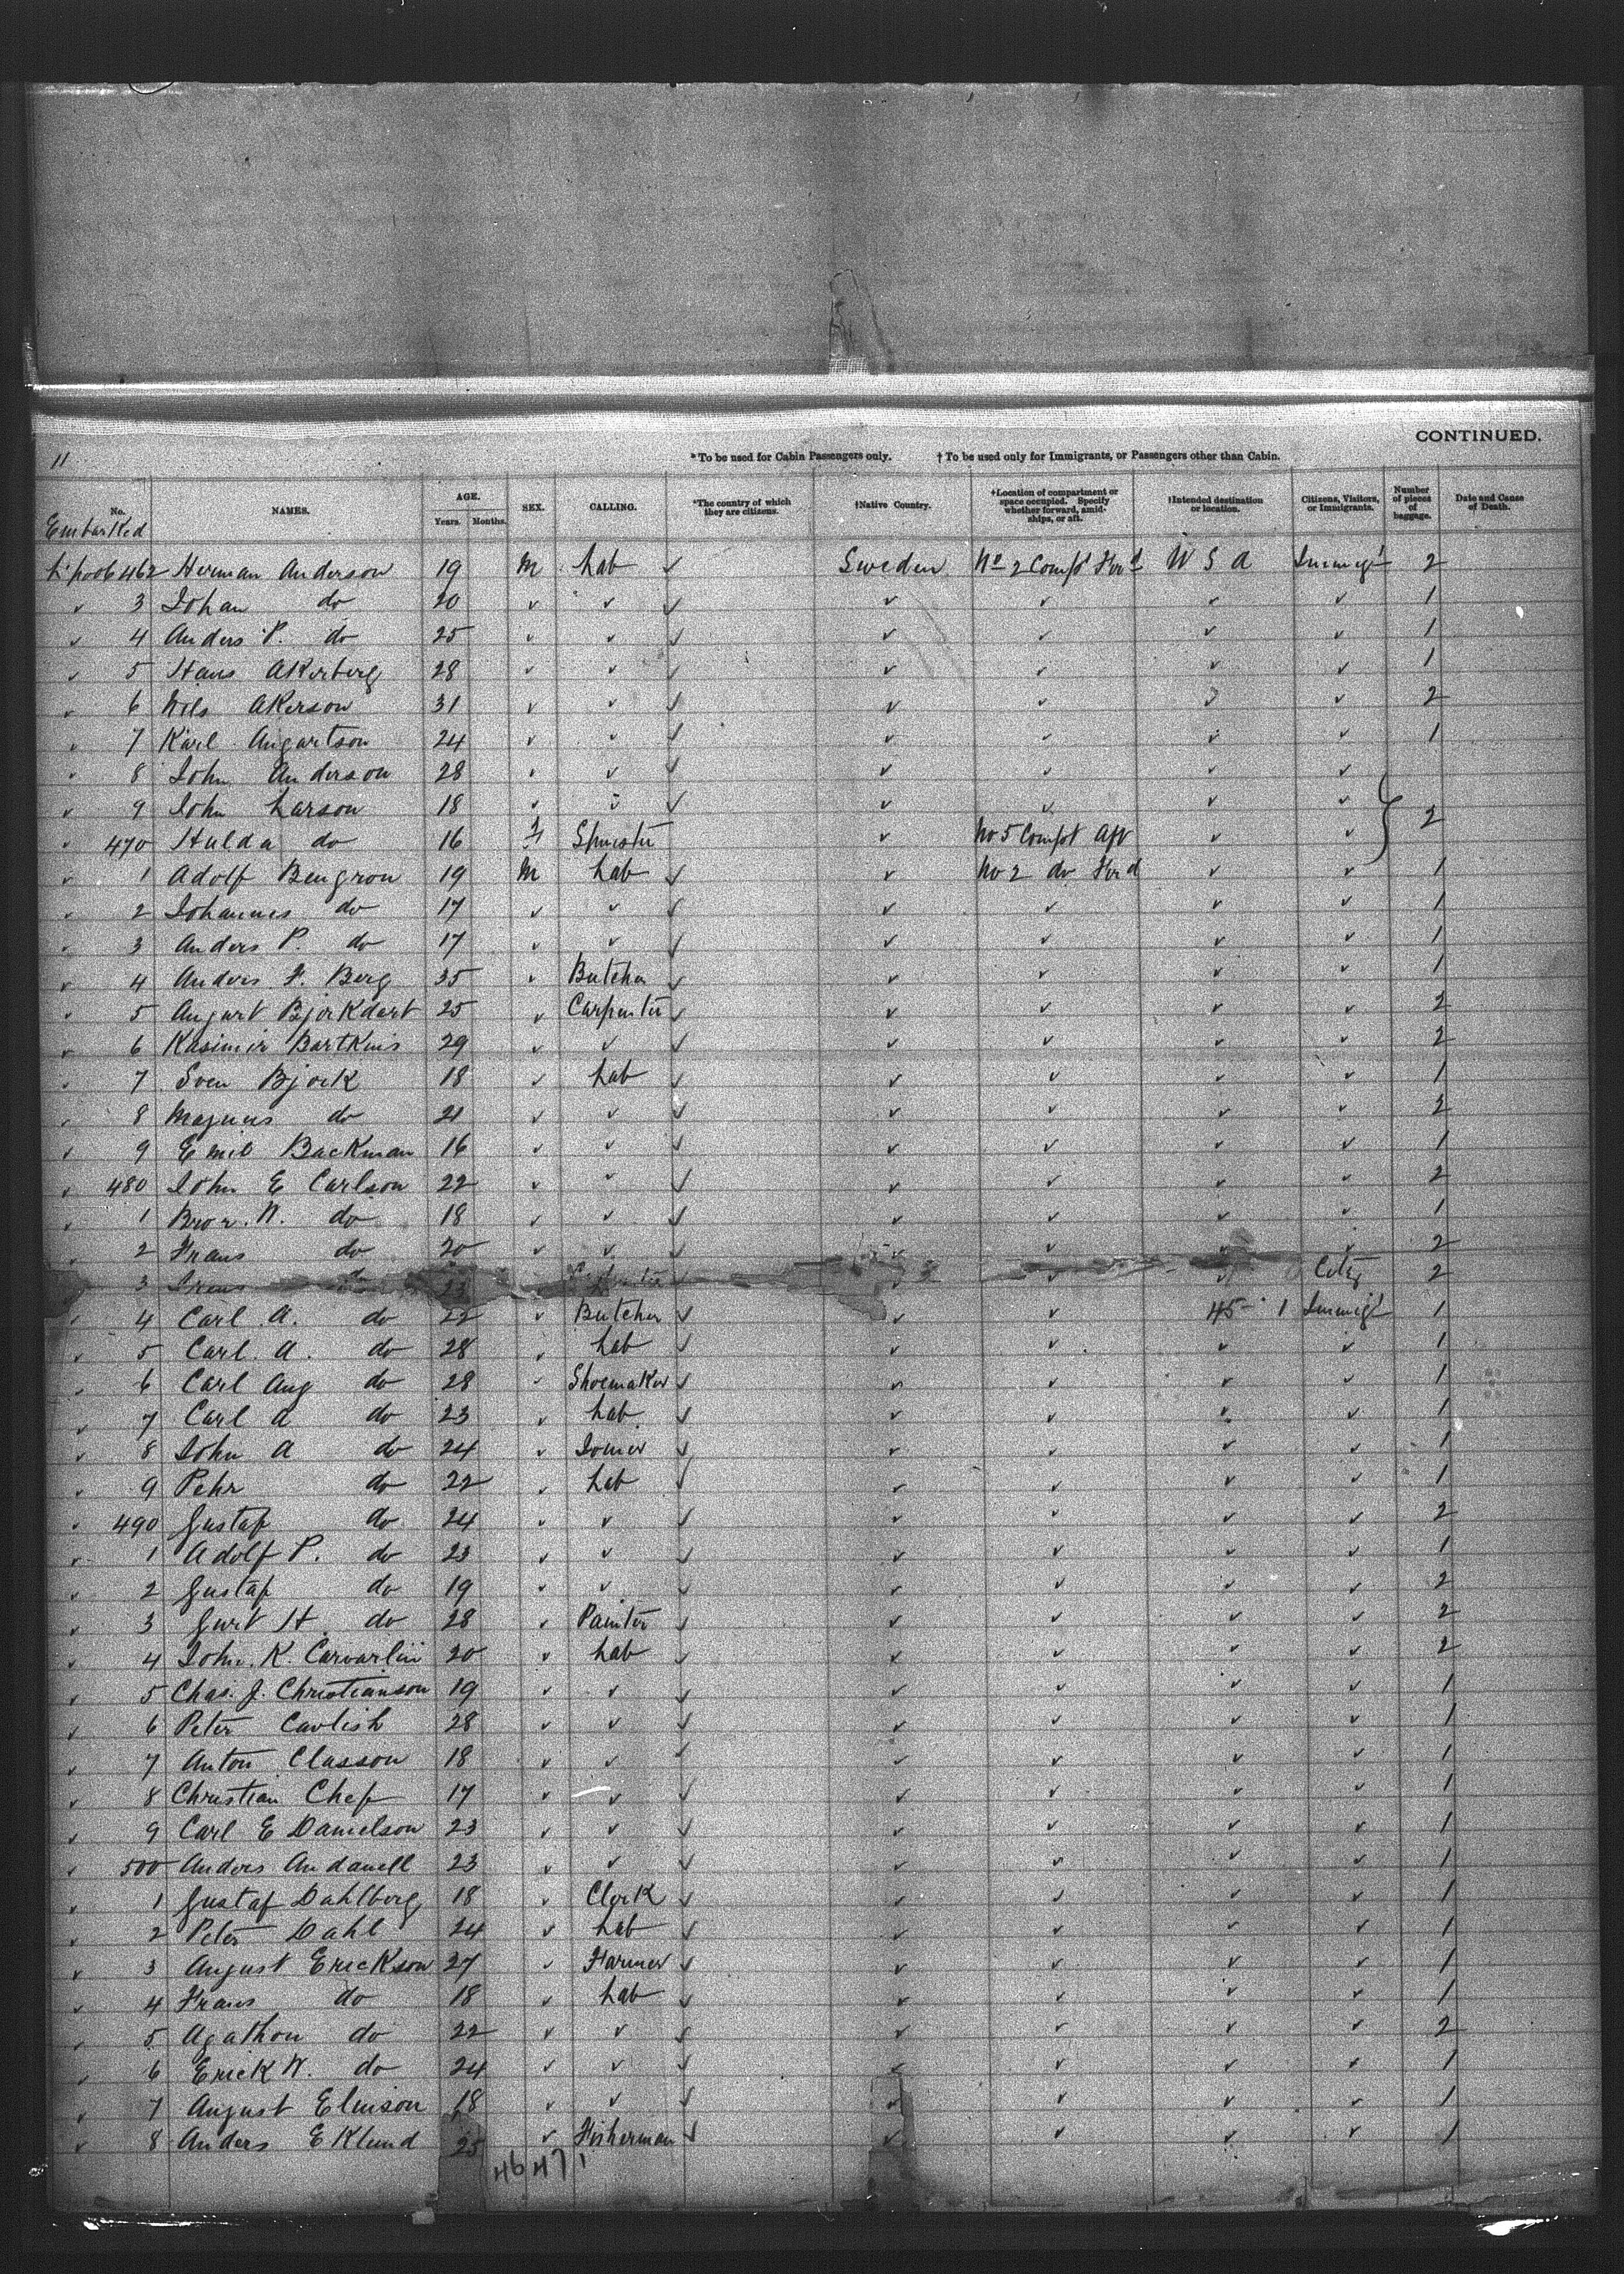 CONTINUED.
11
*To be used for Cabin Passengers only. †To be used only for Immigrants, or Passengers other than Cabin.
No. NAMES. AGE. Years. Months. SEX. CALLING. *The country of which they are citizens. †Native Country. †Location of compartment or space occupied. Specify whether forward, amidships, or aft. †Intended destination or location. Citizens, Visitors, or Immigrants. Number of pieces of baggage. Date and Cause of Death.
Embarked
L'pool 462 Herman Anderson 19 M Lab ✓ Sweden No 2 Compt For'd U S A Immig't 2
✓ 3 Johan do 20 ✓ ✓ ✓ ✓ ✓ ✓ ✓ 1
✓ 4 Anders P. do 25 ✓ ✓ ✓ ✓ ✓ ✓ ✓ 1
✓ 5 Hans Akerberg 28 ✓ ✓ ✓ ✓ ✓ ✓ ✓ 1
✓ 6 Nels Akerson 31 ✓ ✓ ✓ ✓ ✓ ✓ ✓ 2
✓ 7 Karl Angartson 24 ✓ ✓ ✓ ✓ ✓ ✓ ✓ 1
✓ 8 John Anderson 28 ✓ ✓ ✓ ✓ ✓ ✓ ✓
✓ 9 John Larson 18 ✓ ✓ ✓ ✓ ✓ ✓ ✓ 2
✓ 470 Hulda do 16 F Spinster ✓ No 5 Compt Aft ✓ ✓
✓ 1 Adolf Bengron 19 M Lab ✓ ✓ No 2 do For'd ✓ ✓ 1
✓ 2 Johannes do 17 ✓ ✓ ✓ ✓ ✓ ✓ ✓ 1
✓ 3 Anders P. do 17 ✓ ✓ ✓ ✓ ✓ ✓ ✓ 1
✓ 4 Anders F. Berg 35 ✓ Butcher ✓ ✓ ✓ ✓ ✓ 1
✓ 5 August Bjorkdart 25 ✓ Carpenter ✓ ✓ ✓ ✓ ✓ 2
✓ 6 Kasimir Bartkins 29 ✓ ✓ ✓ ✓ ✓ ✓ ✓ 2
✓ 7 Sven Bjork 18 ✓ Lab ✓ ✓ ✓ ✓ ✓ 1
✓ 8 Magnus do 21 ✓ ✓ ✓ ✓ ✓ ✓ ✓ 2
✓ 9 Emil Backman 16 ✓ ✓ ✓ ✓ ✓ ✓ ✓ 1
✓ 480 John E Carlson 22 ✓ ✓ ✓ ✓ ✓ ✓ ✓ 2
✓ 1 Bror. W. do 18 ✓ ✓ ✓ ✓ ✓ ✓ ✓ 1
✓ 2 Frans do 20 ✓ ✓ ✓ ✓ ✓ ✓ ✓ 2
3 do 23 ✓ ✓ ✓ ✓ City 2
✓ 4 Carl A. do 22 ✓ Butcher ✓ ✓ ✓ 45 1 Immig't 1
✓ 5 Carl. A. do 28 ✓ Lab ✓ ✓ ✓ ✓ ✓ 1
✓ 6 Carl Aug do 28 ✓ Shoemaker ✓ ✓ ✓ ✓ ✓ 1
✓ 7 Carl A do 23 ✓ Lab ✓ ✓ ✓ ✓ ✓ 1
✓ 8 John A do 24 ✓ Joiner ✓ ✓ ✓ ✓ ✓ 1
✓ 9 Pehr do 22 ✓ Lab ✓ ✓ ✓ ✓ ✓ 1
✓ 490 Gustaf do 24 ✓ ✓ ✓ ✓ ✓ ✓ ✓ 2
✓ 1 Adolf P. do 23 ✓ ✓ ✓ ✓ ✓ ✓ ✓ 1
✓ 2 Gustaf do 19 ✓ ✓ ✓ ✓ ✓ ✓ ✓ 2
✓ 3 Gust H. do 28 ✓ Painter ✓ ✓ ✓ ✓ ✓ 2
✓ 4 John. K. 20 ✓ Lab ✓ ✓ ✓ ✓ ✓ 2
✓ 5 Chas. J. Christianson 19 ✓ ✓ ✓ ✓ ✓ ✓ ✓ 1
✓ 6 Peter Cavlish 28 ✓ ✓ ✓ ✓ ✓ ✓ ✓ 1
✓ 7 Anton Classon 18 ✓ ✓ ✓ ✓ ✓ ✓ ✓ 1
✓ 8 Christian Chef 17 ✓ ✓ ✓ ✓ ✓ ✓ ✓ 1
✓ 9 Carl E Danielson 23 ✓ ✓ ✓ ✓ ✓ ✓ ✓ 1
✓ 500 Anders Andanell 23 ✓ ✓ ✓ ✓ ✓ ✓ ✓ 1
✓ 1 Gustaf Dahlberg 18 ✓ Clerk ✓ ✓ ✓ ✓ ✓ 1
✓ 2 Peter Dahl 24 ✓ Lab ✓ ✓ ✓ ✓ ✓ 1
✓ 3 August Erickson 27 ✓ Farmer ✓ ✓ ✓ ✓ ✓ 1
✓ 4 Frans do 18 ✓ Lab ✓ ✓ ✓ ✓ ✓ 1
✓ 5 Agathon do 22 ✓ ✓ ✓ ✓ ✓ ✓ ✓ 2
✓ 6 Erick W. do 24 ✓ ✓ ✓ ✓ ✓ ✓ ✓ 1
✓ 7 August Elinson 18 ✓ ✓ ✓ ✓ ✓ ✓ ✓ 1
✓ 8 Anders Eklund 25 ✓ Fisherman ✓ ✓ ✓ ✓ ✓ 1
46 47 1